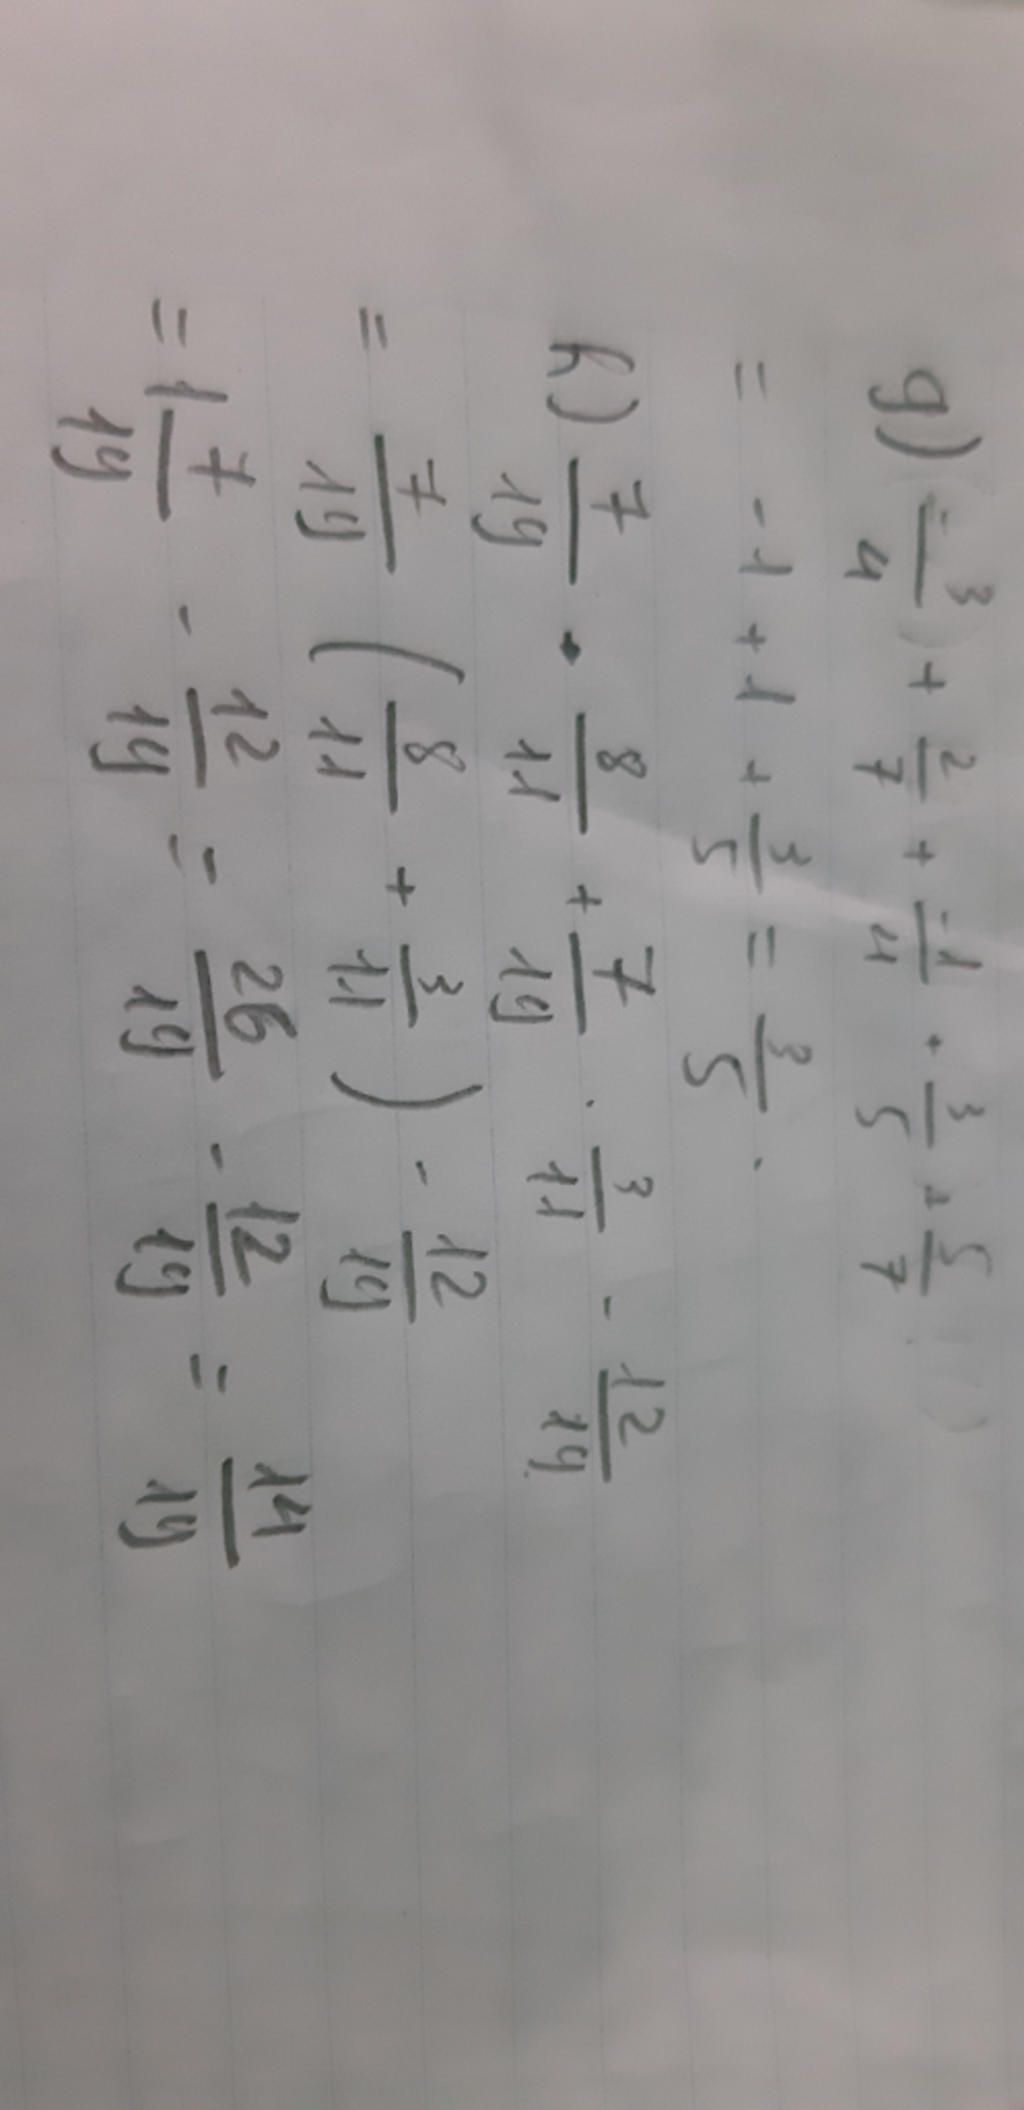 g) \frac{-3}{4} + \frac{2}{7} + \frac{-1}{4} + \frac{3}{5} + \frac{5}{7}
= -1 + 1 + \frac{3}{5} = \frac{3}{5}.
h) \frac{7}{19} \cdot \frac{8}{11} + \frac{7}{19} \cdot \frac{3}{11} - \frac{12}{19}
= \frac{7}{19} ( \frac{8}{11} + \frac{3}{11} ) - \frac{12}{19}
= 1 \frac{7}{19} - \frac{12}{19} = \frac{26}{19} - \frac{12}{19} = \frac{14}{19}